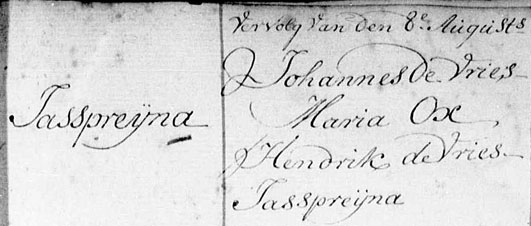 Vervolg van den 8e Augusts
Jasspreijna
Johannes de Vries
Maria Ox
Hendrik de Vries
Jasspreijna